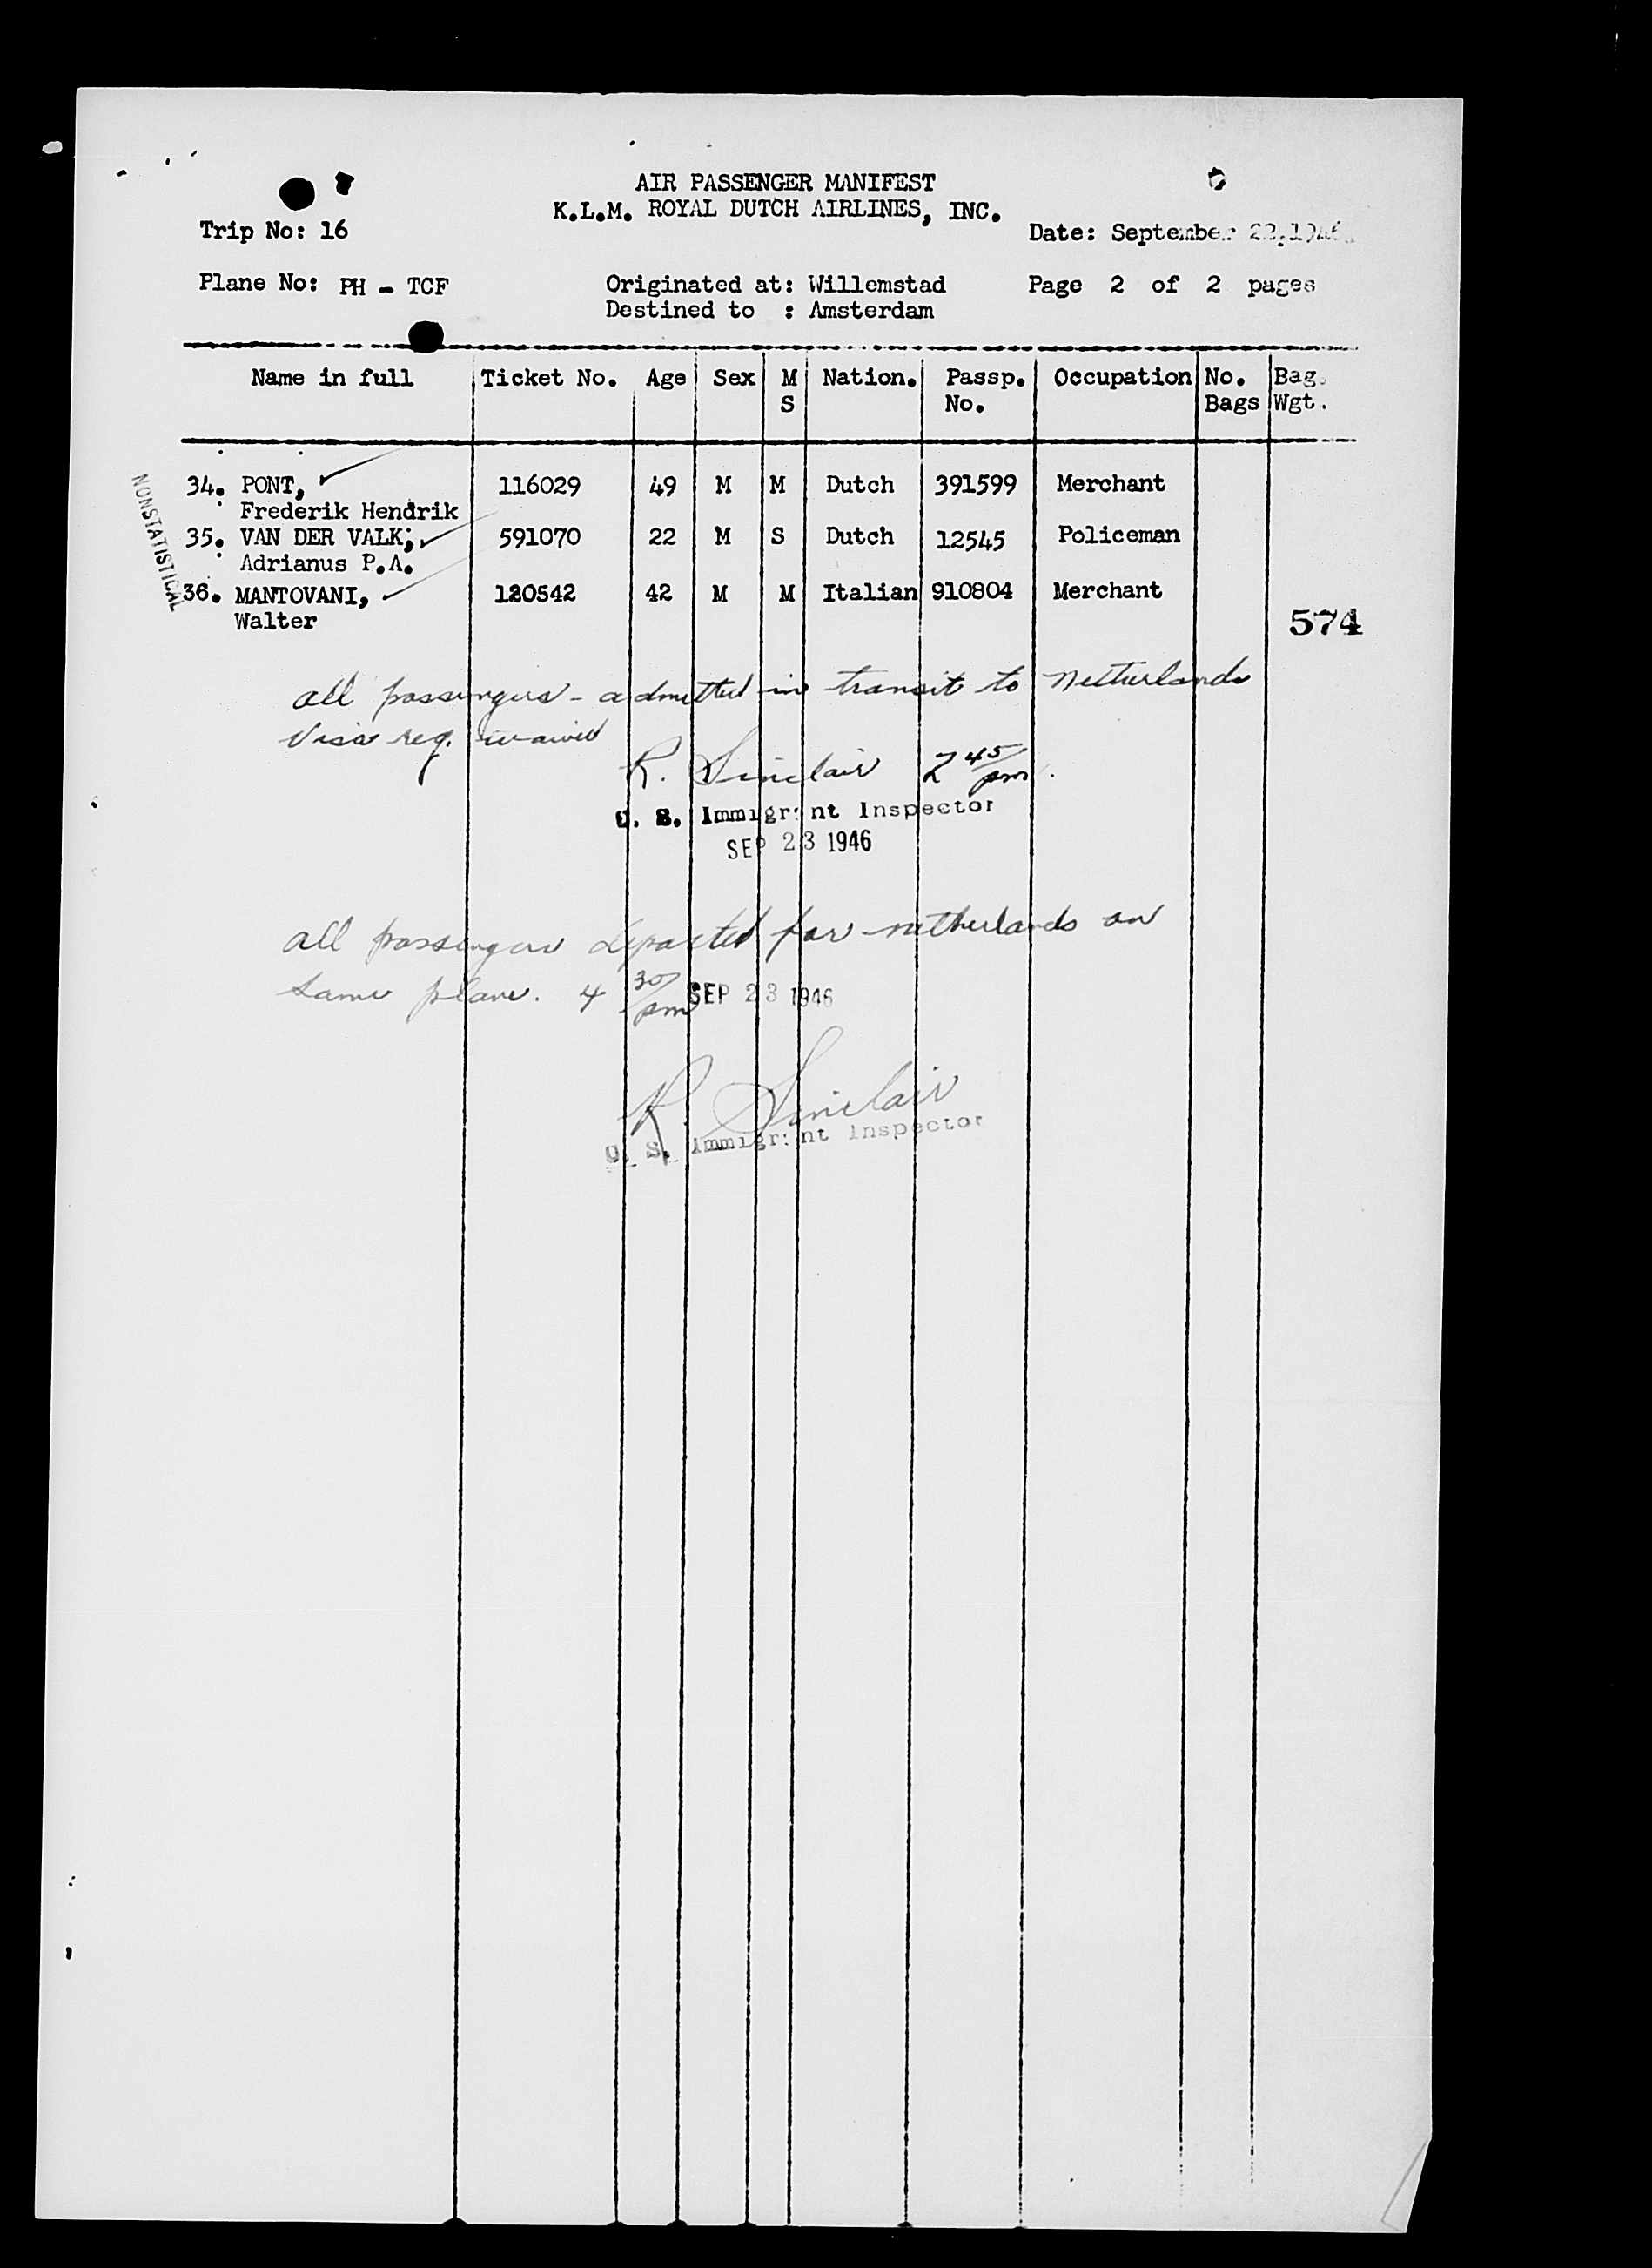 AIR PASSENGER MANIFEST
K.L.M. ROYAL DUTCH AIRLINES, INC.
Trip No: 16 Date: September 22,1946.
Plane No: PH - TCF Originated at: Willemstad Page 2 of 2 pages
Destined to : Amsterdam
Name in full Ticket No. Age Sex M Nation. Passp. Occupation No. Bag.
S No. Bags Wgt.
34. PONT, 116029 49 M M Dutch 391599 Merchant
Frederik Hendrik
35. VAN DER VALK; 591070 22 M S Dutch 12545 Policeman
Adrianus P.A.
36. MANTOVANI, 120542 42 M M Italian 910804 Merchant
Walter
NONSTATISTICAL
574
all passengers - admitted in transit to Netherlands
Visa req. waived
R. Sinclair 2 45/pm.
U. S. Immigrant Inspector
SEP 23 1946
all passengers departed for netherlands on
same plane. 4 30/pm SEP 23 1946
R. Sinclair
U. S. Immigrant Inspector